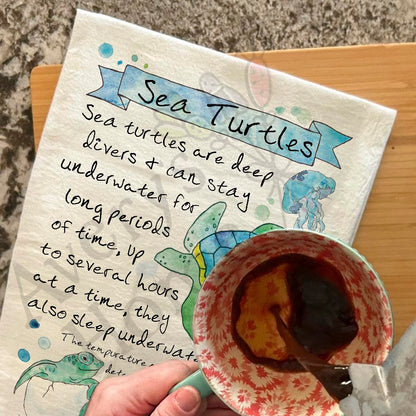 Sea Turtles
Sea turtles are deep
divers & can stay
underwater for
long periods
of time, up
to several hours
at a time, they
also sleep underwater
The temperature
det